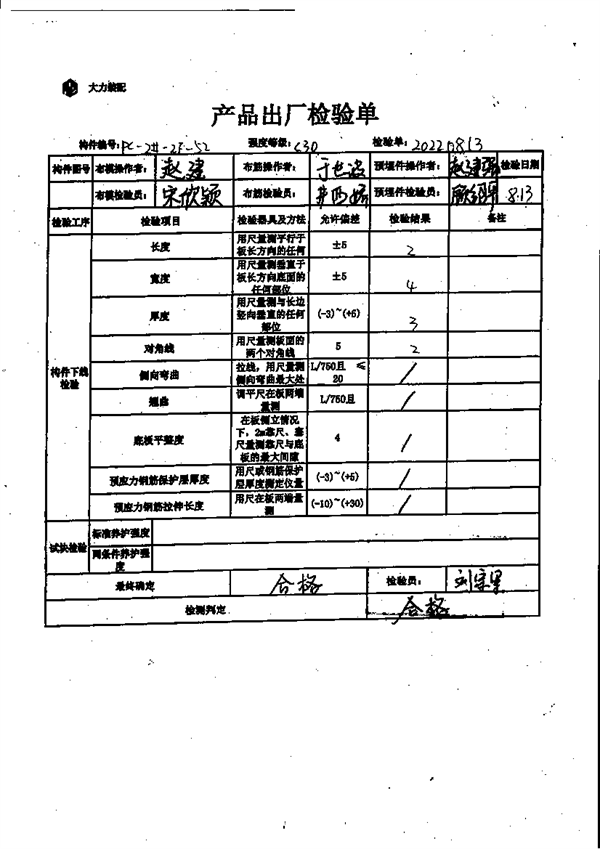 大力装配
产品出厂检验单
构件编号: PC-2#-2F-52 强度等级: C30 检验单: 2022.08.13
构件图号 布模操作者: 赵建 布筋操作者: 预埋件操作者: 赵建 检验日期
布模检验员: 宋欣颖 布筋检验员: 预埋件检验员: 8.13
检验工序 检验项目 检验器具及方法 允许偏差 检验结果 备注
构件下线检验
长度 用尺量测平行于板长方向的任何 ±5 2
宽度 用尺量测垂直于板长方向底面的任何部位 ±5 4
厚度 用尺量测与长边竖向垂直的任何部位 (-3)~(+6) 3
对角线 用尺量测板面的两个对角线 5 2
侧向弯曲 拉线,用尺量测侧向弯曲最大处 L/750且 ≤20 /
翘曲 调平尺在板两端量测 L/750且 /
底板平整度 在板侧立情况下,2m靠尺、塞尺量测靠尺与底板的最大间隙 4 /
预应力钢筋保护层厚度 用尺或钢筋保护层厚度测定仪量 (-3)~(+5) /
预应力钢筋拉伸长度 用尺在板两端量测 (-10)~(+30) /
试块检验 标准养护强度
同条件养护强度
最终确定 合格 检验员:
检测判定 合格